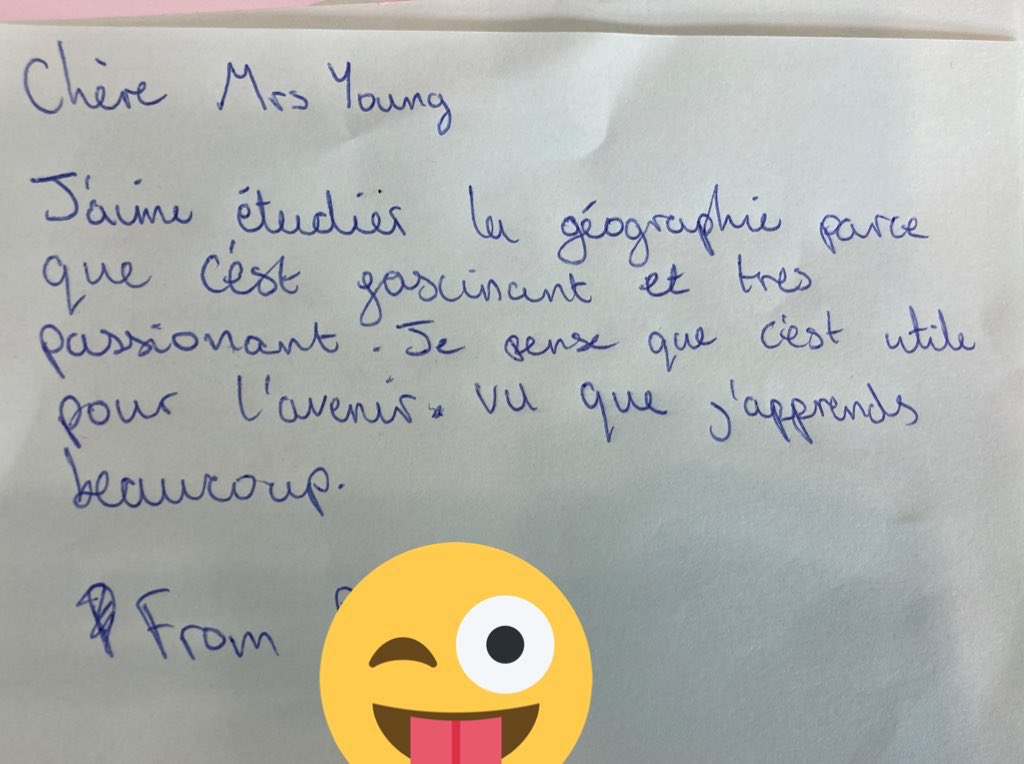 Chère Mrs Young
J'aime étudier la géographie parce
que c'ést fascinant et tres
passionant. Je pense que c'est utile
pour l'avenir. vu que j'apprends
beaucoup.
From